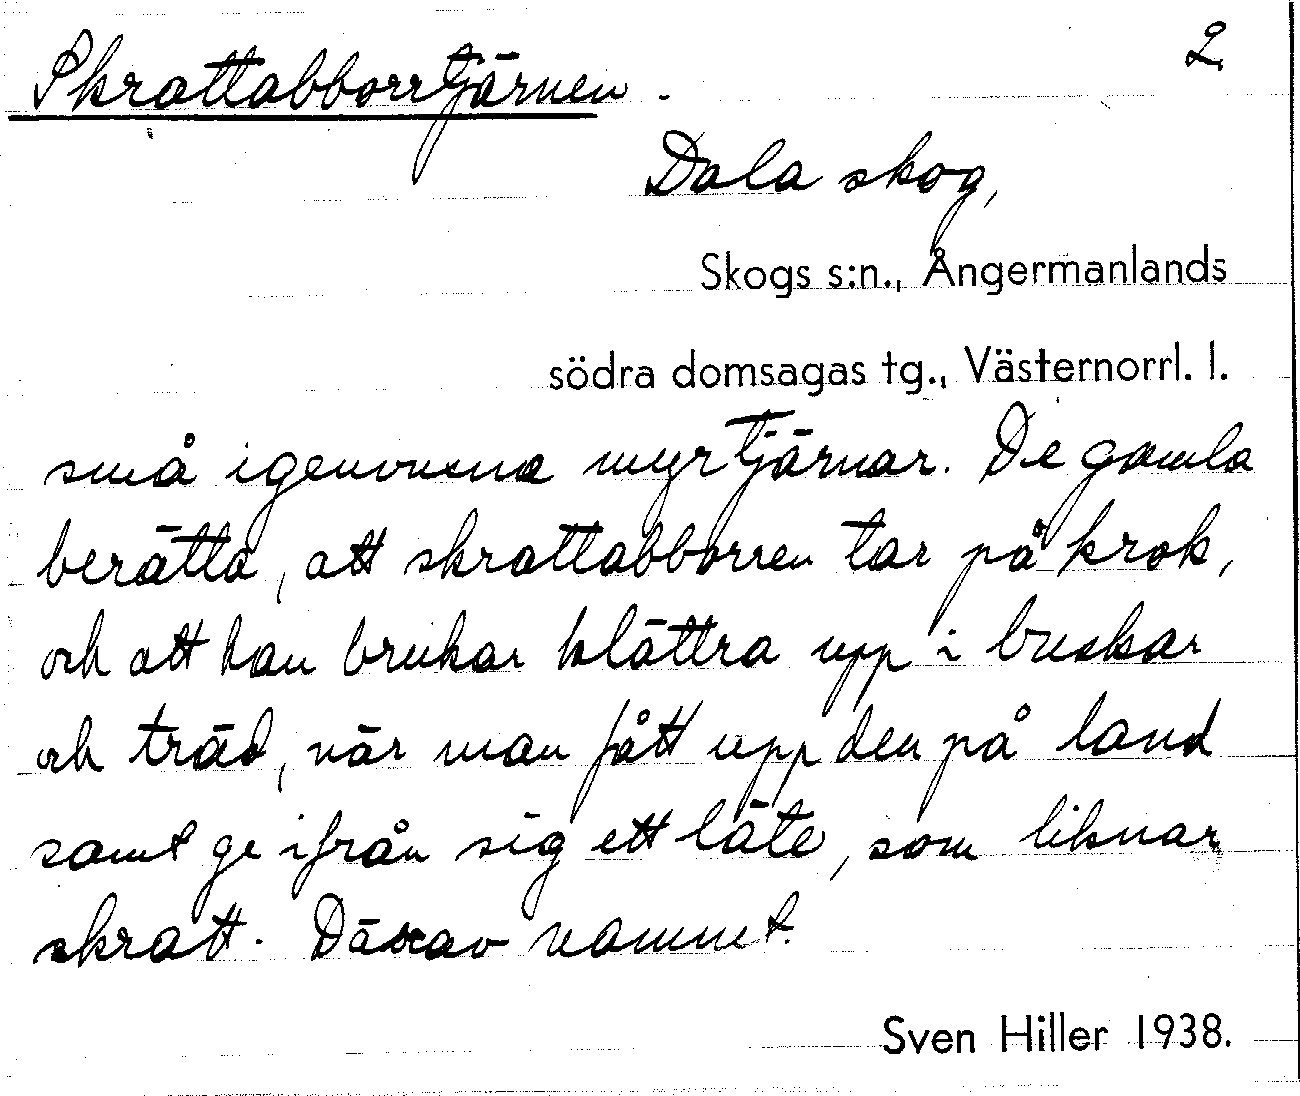 Skrattabborrtjärnen. 2.
Dala skog,
Skogs s:n., Ångermanlands
södra domsagas tg., Västernorrl. l.
små igenvuxna myrtjärnar. De gamla
berätta, att skrattabborren tar på krok,
och att han brukar klättra upp i buskar
och träd, när man fått upp den på land
samt ge ifrån sig ett läte, som liknar
skratt. Därav namnet.
Sven Hiller 1938.